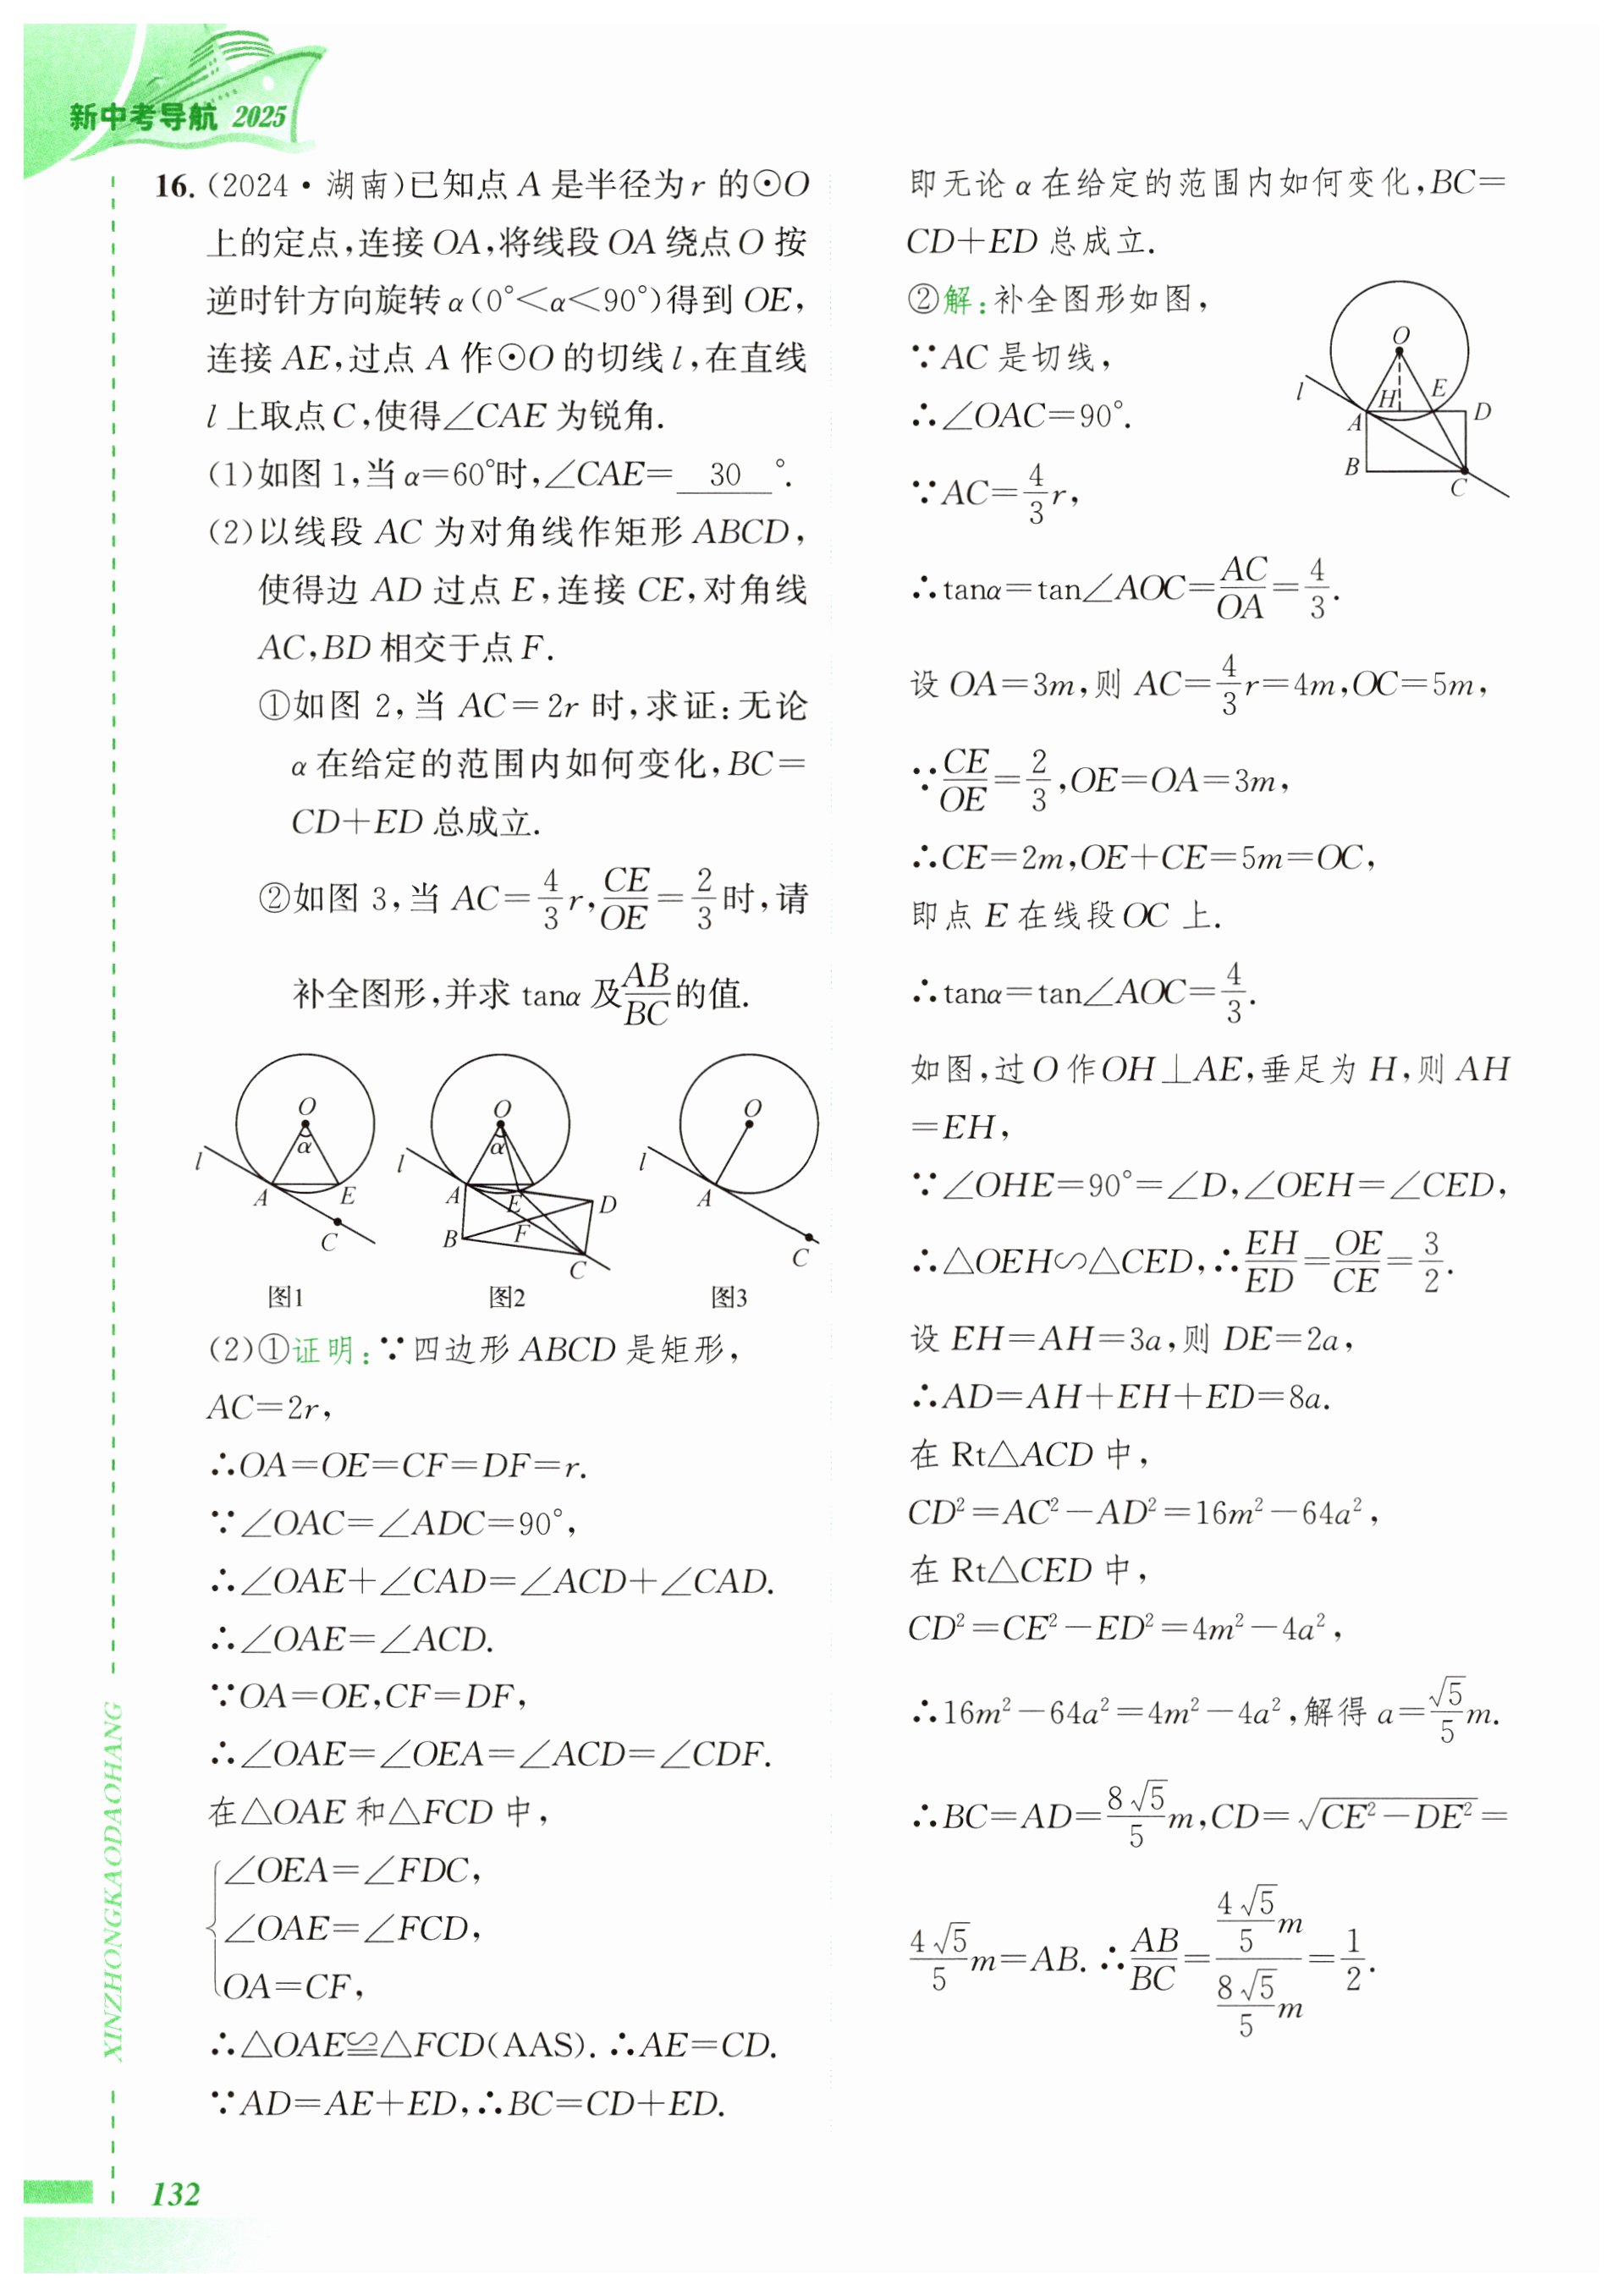 新中考导航 2025
16.(2024·湖南)已知点 A 是半径为 r 的⊙O
上的定点,连接 OA,将线段 OA 绕点 O 按
逆时针方向旋转 α(0°<α<90°)得到 OE,
连接 AE,过点 A 作⊙O 的切线 l,在直线
l 上取点 C,使得∠CAE 为锐角.
(1)如图 1,当 α=60°时,∠CAE= 30 °.
(2)以线段 AC 为对角线作矩形 ABCD,
使得边 AD 过点 E,连接 CE,对角线
AC,BD 相交于点 F.
①如图 2,当 AC=2r 时,求证:无论
α 在给定的范围内如何变化,BC=
CD+ED 总成立.
②如图 3,当 AC=4/3r,CE/OE=2/3时,请
补全图形,并求 tanα 及AB/BC的值.
O α l A E C
图1
O α l A E D B F C
图2
O l A C
图3
(2)①证明:∵四边形 ABCD 是矩形,
AC=2r,
∴OA=OE=CF=DF=r.
∵∠OAC=∠ADC=90°,
∴∠OAE+∠CAD=∠ACD+∠CAD.
∴∠OAE=∠ACD.
∵OA=OE,CF=DF,
∴∠OAE=∠OEA=∠ACD=∠CDF.
在△OAE 和△FCD 中,
{∠OEA=∠FDC,
∠OAE=∠FCD,
OA=CF,
∴△OAE≌△FCD(AAS). ∴AE=CD.
∵AD=AE+ED,∴BC=CD+ED.
即无论 α 在给定的范围内如何变化,BC=
CD+ED 总成立.
②解:补全图形如图,
∵AC 是切线,
∴∠OAC=90°.
∵AC=4/3r,
O l H E A D B C
∴tanα=tan∠AOC=AC/OA=4/3.
设 OA=3m,则 AC=4/3r=4m,OC=5m,
∵CE/OE=2/3,OE=OA=3m,
∴CE=2m,OE+CE=5m=OC,
即点 E 在线段 OC 上.
∴tanα=tan∠AOC=4/3.
如图,过 O 作 OH⊥AE,垂足为 H,则 AH
=EH,
∵∠OHE=90°=∠D,∠OEH=∠CED,
∴△OEH∽△CED,∴EH/ED=OE/CE=3/2.
设 EH=AH=3a,则 DE=2a,
∴AD=AH+EH+ED=8a.
在 Rt△ACD 中,
CD²=AC²-AD²=16m²-64a²,
在 Rt△CED 中,
CD²=CE²-ED²=4m²-4a²,
∴16m²-64a²=4m²-4a²,解得 a=√5/5m.
∴BC=AD=8√5/5m,CD=√(CE²-DE²)=
4√5/5m=AB. ∴AB/BC=(4√5/5m)/(8√5/5m)=1/2.
XINZHONGKAODAOHANG
132